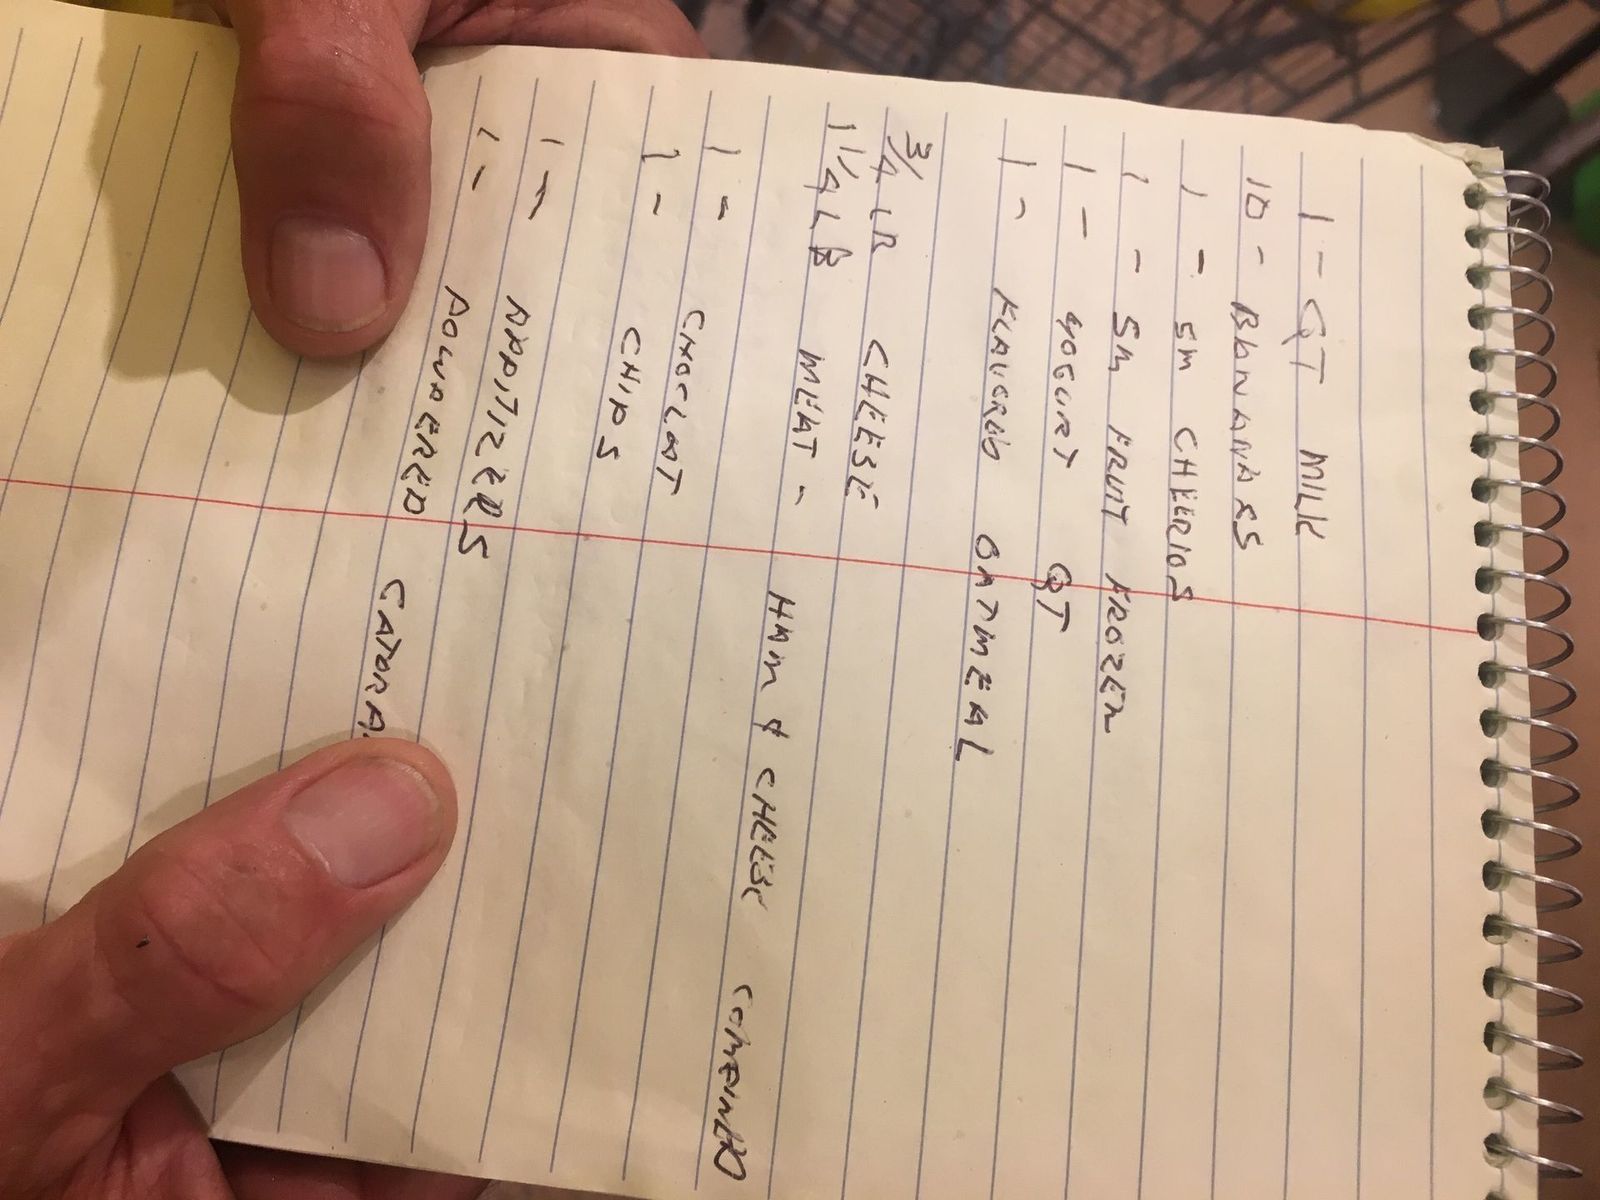 1 - QT MILK
10 - BANANAS
1 - SM CHEERIOS
1 - SM FRUIT FROZEN
1 - YOGURT QT
1 - FLAVORED OATMEAL
3/4 LB CHEESE
1 1/4 LB MEAT - HAM & CHEESE COMBINED
1 - CHOCLAT
1 - CHIPS
1 - APPITIZERS
1 - POWDERED GATORA